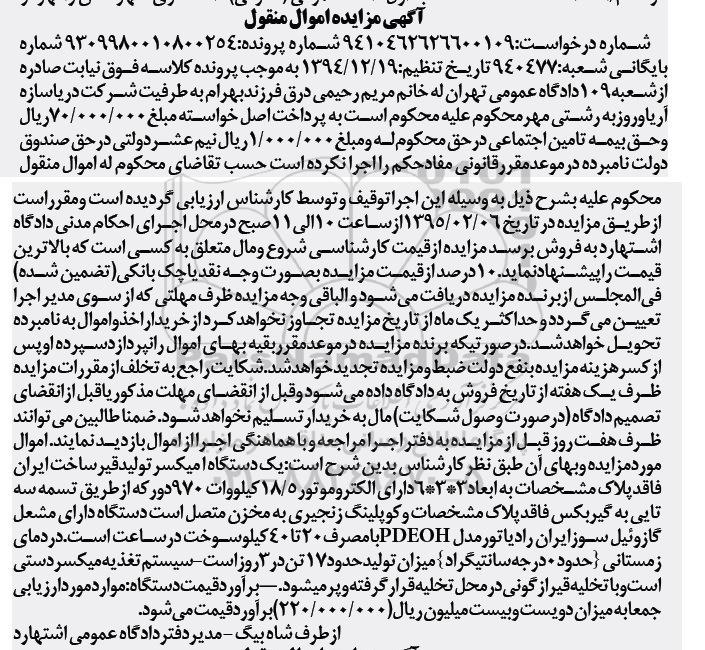 آگهی مزایده اموال منقول
شماره درخواست:۹۴۱۰۴۶۲۶۲۶۶۰۰۱۰۹ شماره پرونده:۹۳۰۹۹۸۰۰۱۰۸۰۰۲۵۴ شماره
بایگانی شعبه:۹۴۰۴۷۷ تاریخ تنظیم:۱۳۹۴/۱۲/۱۹ به موجب پرونده کلاسه فوق نیابت صادره
از شعبه ۱۰۹ دادگاه عمومی تهران له خانم مریم رحیمی درق فرزند بهرام به طرفیت شرکت دریا سازه
آریا و روزبه رشتی مهر محکوم علیه محکوم است به پرداخت اصل خواسته مبلغ ۷۰/۰۰۰/۰۰۰ ریال
و حق بیمه تامین اجتماعی در حق محکوم له و مبلغ ۱/۰۰۰/۰۰۰ ریال نیم عشر دولتی در حق صندوق
دولت نامبرده در موعد مقرر قانونی مفاد حکم را اجرا نکرده است حسب تقاضای محکوم له اموال منقول
محکوم علیه بشرح ذیل به وسیله این اجرا توقیف و توسط کارشناس ارزیابی گردیده است و مقرر است
از طریق مزایده در تاریخ ۱۳۹۵/۰۲/۰۶ از ساعت ۱۰ الی ۱۱ صبح در محل اجرای احکام مدنی دادگاه
اشتهارد به فروش برسد مزایده از قیمت کارشناسی شروع و مال متعلق به کسی است که بالاترین
قیمت را پیشنهاد نماید. ۱۰ درصد از قیمت مزایده بصورت وجه نقد یا چک بانکی (تضمین شده)
فی المجلس از برنده مزایده دریافت می شود و الباقی وجه مزایده ظرف مهلتی که از سوی مدیر اجرا
تعیین می گردد و حداکثر یک ماه از تاریخ مزایده تجاوز نخواهد کرد از خریدار اخذ و اموال به نامبرده
تحویل خواهد شد. در صورتیکه برنده مزایده در موعد مقرر بقیه بهای اموال را نپردازد سپرده او پس
از کسر هزینه مزایده بنفع دولت ضبط و مزایده تجدید خواهد شد. شکایت راجع به تخلف از مقررات مزایده
ظرف یک هفته از تاریخ فروش به دادگاه داده می شود و قبل از انقضای مهلت مذکور یا قبل از انقضای
تصمیم دادگاه (در صورت وصول شکایت) مال به خریدار تسلیم نخواهد شد. ضمنا طالبین می توانند
ظرف هفت روز قبل از مزایده به دفتر اجرا مراجعه و با هماهنگی اجرا از اموال بازدید نمایند. اموال
مورد مزایده و بهای آن طبق نظر کارشناس بدین شرح است: یک دستگاه ا میکسر تولید قیر ساخت ایران
فاقد پلاک مشخصات به ابعاد ۲*۳*۶ ۱ دارای الکتروموتور ۱۸/۵ کیلووات ۹۷۰ دور که از طریق تسمه سه
تایی به گیربکس فاقد پلاک مشخصات و کوپلینگ زنجیری به مخزن متصل است دستگاه دارای مشعل
گازوئیل سوز ایران رادیاتور مدل PDEOH با مصرف ۲۰ تا ۴۰ کیلو سوخت در ساعت است. در دمای
زمستانی {حدود ۰ درجه سانتیگراد} میزان تولید حدود ۱۷ تن در ۳ روز است - سیستم تغذیه میکسر دستی
است و با تخلیه قیر از گونی در محل تخلیه قرار گرفته و پر میشود. — برآورد قیمت دستگاه: موارد مورد ارزیابی
جمعا به میزان دویست و بیست میلیون ریال (۲۲۰/۰۰۰/۰۰۰) برآورد قیمت می شود.
از طرف شاه بیگ - مدیر دفتر دادگاه عمومی اشتهارد